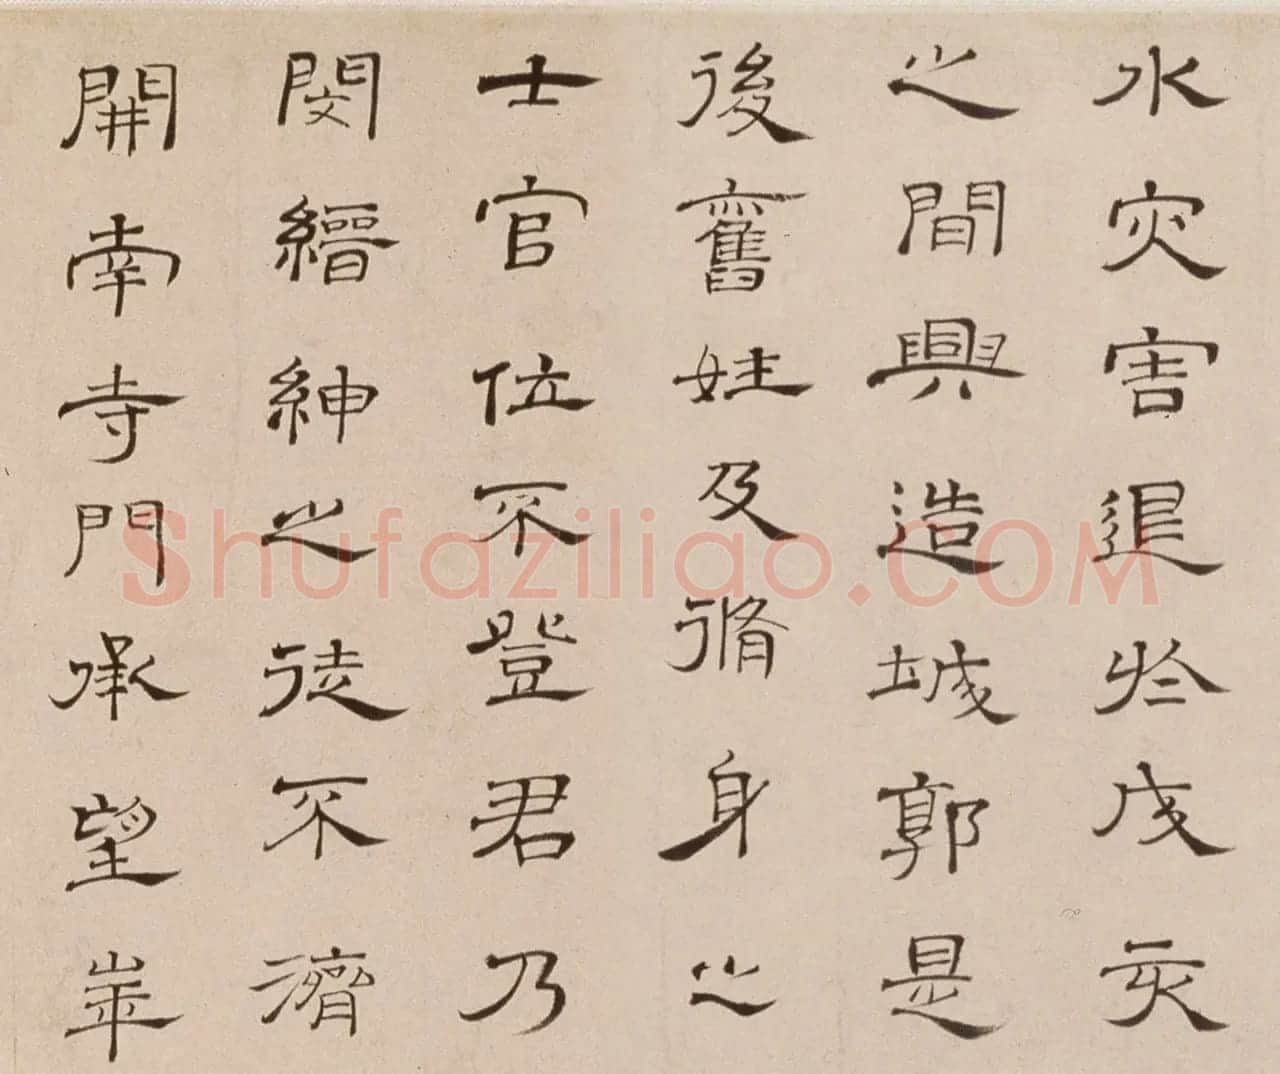 水灾害退於戊亥
之間興造城郭是
後舊姓及脩身之
士官位不登君乃
閔縉紳之徒不濟
開南寺門承望華
Shufaziliao.COM